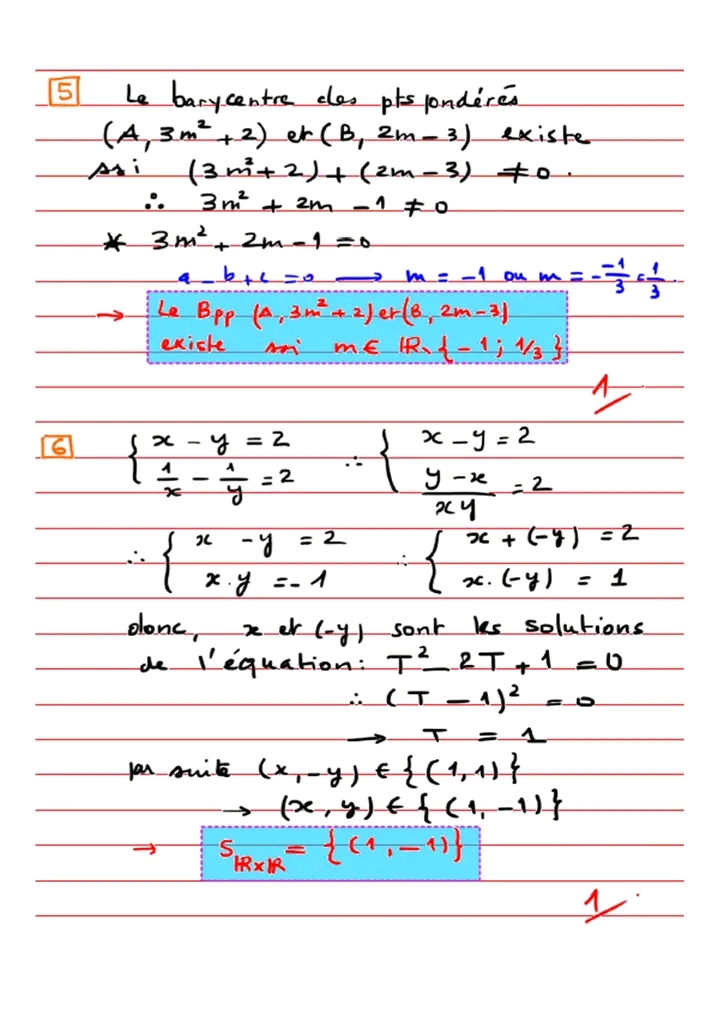 5 Le barycentre des pts pondérés
(A, 3m² + 2) et (B, 2m - 3) existe
ssi (3m² + 2) + (2m - 3) ≠ 0.
∴ 3m² + 2m - 1 ≠ 0
* 3m² + 2m - 1 = 0
a - b + c = 0 → m = -1 ou m = - -1/3 = 1/3.
→ Le Bpp (A, 3m² + 2) et (B, 2m - 3)
existe ssi m ∈ ℝ \ { -1 ; 1/3 }
1
6 { x - y = 2 ; 1/x - 1/y = 2 ∴ { x - y = 2 ; (y - x)/(xy) = 2
∴ { x - y = 2 ; x . y = -1 ∴ { x + (-y) = 2 ; x . (-y) = 1
donc, x et (-y) sont les solutions
de l'équation: T² - 2T + 1 = 0
∴ (T - 1)² = 0
→ T = 1
par suite (x, -y) ∈ { (1, 1) }
→ (x, y) ∈ { (1, -1) }
→ S ℝ×ℝ = { (1, -1) }
1.